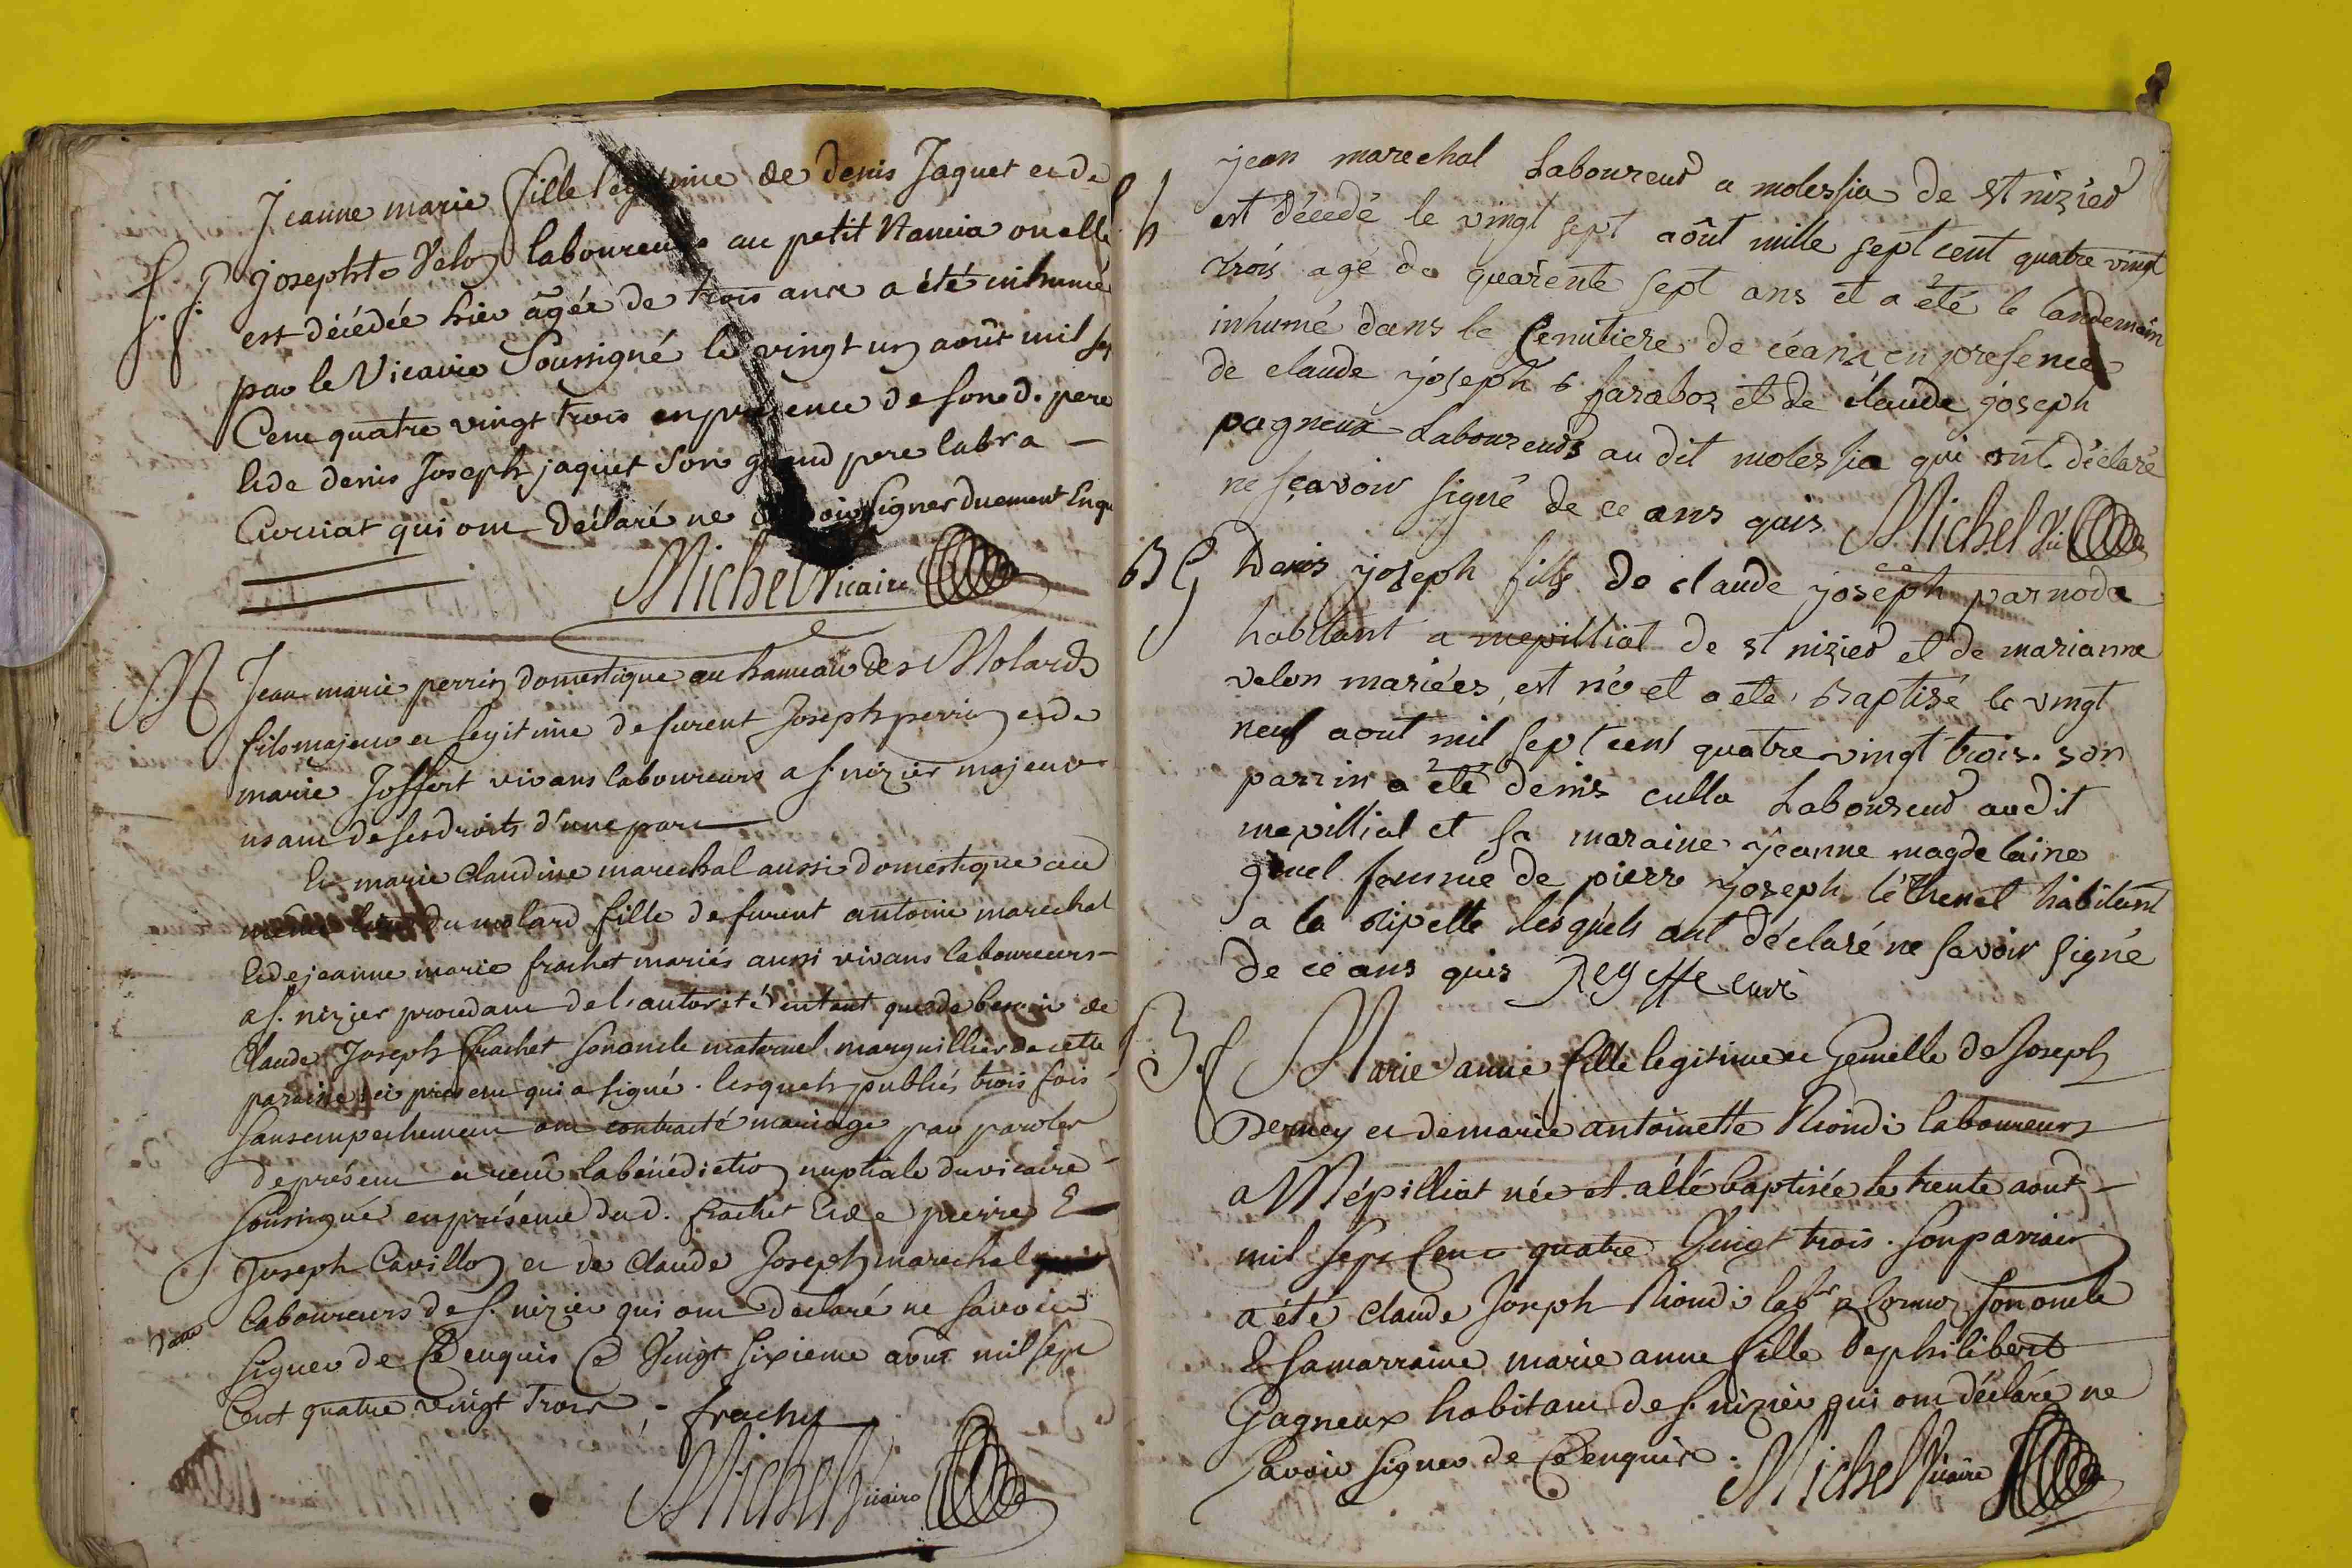 Jeanne marie fille légitime de denis Jaquet et de
S. f. josephte Velon laboureurs au petit Namia ou elle
est décédée hier âgée de trois ans a été inhumé
par le Vicaire Soussigné le vingt un août mil sep
Cent quatre vingt trois en présence de son d. pere
Et de denis Joseph jaquet son grand pere labr a
Curciat qui ont déclaré ne savoir signer duement Enqu
Michel Vicaire
M Jean marie perrin domestique au hameau des Molards
fils majeur et legitime de furent Joseph perrin et de
marie Joffert vivans laboureurs a s. nizier majeur
usant de ses droits d'une part
Et marie Claudine marechal aussi domestique au
même lieu du molard fille de furent antoine marechal
Et de jeanne marie frachet mariés aussi vivans laboureurs
a s. nizier procedant de l'autorité entant que de besoin de
Claude Joseph frachet son oncle maternel marguillier de cette
paroisse ici present qui a signé. lesquels publiés trois fois
sans empechement ont contracté mariage par paroles
de présent et reçu la bénédiction nuptiale du vicaire
soussigné en présence du d. frachet Et de pierre
Joseph Cavillon et de Claude Joseph marechal
laboureurs de s. nizier qui ont déclaré ne savoir
signer de Ce enquis Ce Vingt sixieme août mil sept
Cent quatre vingt Trois frachet
Michel Vicaire
jean marechal Laboureur a molessia de St nizier
est décedé le vingt sept août mille sept cent quatre vingt
trois agé de quarente sept ans et a été le landemain
inhumé dans le Cemitiere de céans en presence
de claude joseph faraboz et de claude joseph
pagneux Laboureurs au dit molessia qui ont déclaré
ne sçavoir signé de ce ans quis Michel Vic
B G Denis joseph fils de claude joseph parnoda
habitant a mepilliat de st nizier et de marianne
velon mariées, est né et a été Baptisé le vingt
neuf aout mil sept cent quatre vingt trois. son
parrin a été denis culla Laboureur audit
mepilliat et sa maraine jeanne magdelaine
femme de pierre joseph léthenet habitant
a la ripette lesquels ont déclaré ne savoir signé
de ce ans quis
B. f Marie anne fille legitime et Gemelle de Joseph
Berney et de marie antoinette Riondi laboureurs
a Mépilliat née et a été baptisée le trente aout
mil Sept Cent quatre Vingt trois. Son parrain
a été Claude Joseph Riondi labr a Cormoz son oncle
Et sa marraine marie anne fille de philibert
Gagneux habitant de s. nizier qui ont déclaré ne
savoir signer de Ce enquis. Michel Vicaire